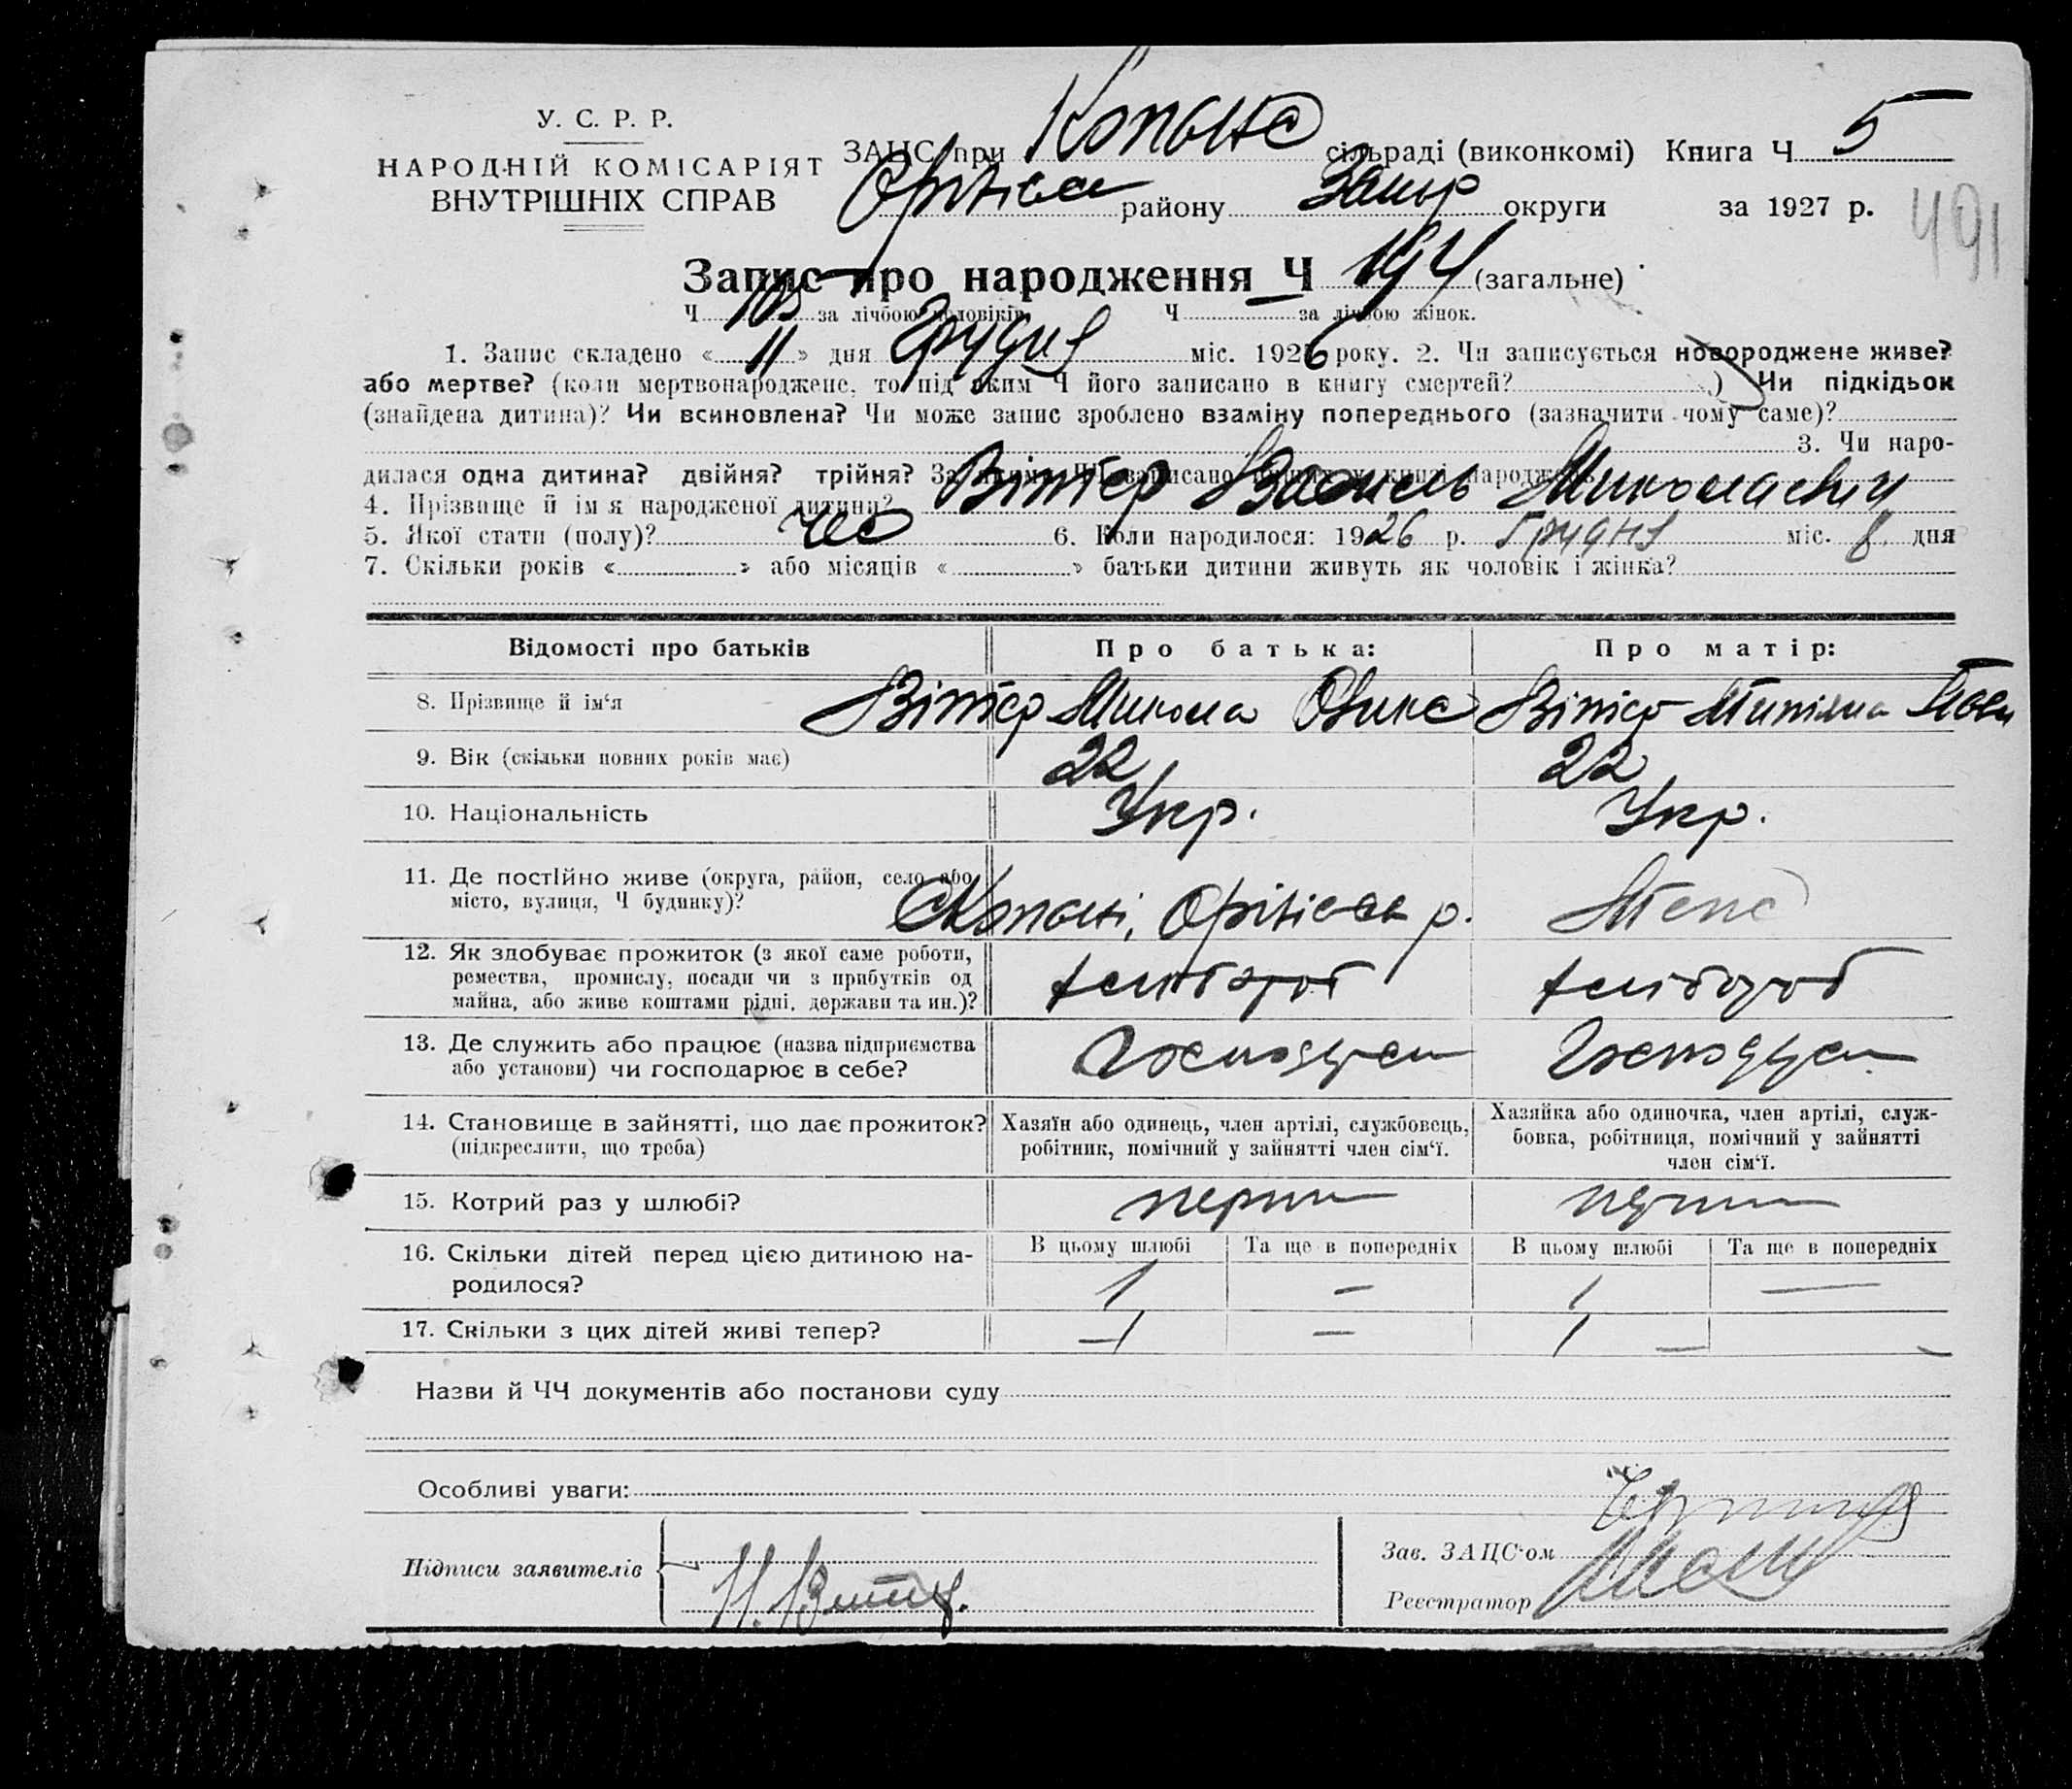 У. С. Р. Р.
НАРОДНІЙ КОМІСАРІЯТ
ВНУТРІШНІХ СПРАВ
ЗАЦС при Копанс сільраді (виконкомі) Книга Ч 5
району Запор округи за 1927 р.
491
Запис про народження Ч 194 (загальне)
Ч 105 за лічбою чоловіків Ч за лічбою жінок.
1. Запис складено « 11 » дня Грудня міс. 1926 року. 2. Чи записується новороджене живе?
або мертве? (коли мертвонароджене, то під яким Ч його записано в книгу смертей? ) Чи підкідьок
(знайдена дитина)? Чи всиновлена? Чи може запис зроблено взаміну попереднього (зазначити чому саме)?
3. Чи наро-
дилася одна дитина? двійня? трійня?
4. Прізвище й ім'я народженої дитини? Вітер Василь Миколаевич
5. Якої стати (полу)? чо 6. Коли народилося: 1926 р. Грудня міс. 8 дня
7. Скільки років « » або місяців « » батьки дитини живуть як чоловік і жінка?
Відомості про батьків Про батька: Про матір:
8. Прізвище й ім'я Вітер Микола Вітер
9. Вік (скільки повних років має) 22 22
10. Національність Укр. Укр.
11. Де постійно живе (округа, район, село або
місто, вулиця, Ч будинку)? с Копані, р.
12. Як здобуває прожиток (з якої саме роботи,
ремества, промислу, посади чи з прибутків од
майна, або живе коштами рідні, держави та ин.)? хлібороб хлібороб
13. Де служить або працює (назва підприємства
або установи) чи господарює в себе?
14. Становище в зайнятті, що дає прожиток?
(підкреслити, що треба)
Хазяїн або одинець, член артілі, службовець,
робітник, помічний у зайнятті член сім'ї.
Хазяйка або одиночка, член артілі, служ-
бовка, робітниця, помічний у зайнятті
член сім'ї.
15. Котрий раз у шлюбі?
16. Скільки дітей перед цією дитиною на-
родилося?
В цьому шлюбі Та ще в попередніх В цьому шлюбі Та ще в попередніх
1 — 1 —
17. Скільки з цих дітей живі тепер? 1 — 1 —
Назви й ЧЧ документів або постанови суду
Особливі уваги:
Підписи заявителів
Зав. ЗАЦС'ом
Реєстратор